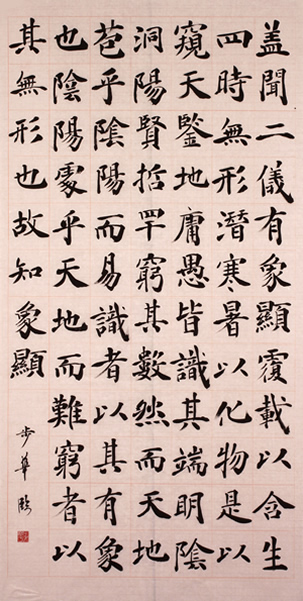 盖聞二儀有象顯覆載以含生
四時無形潛寒暑以化物是以
窺天鑒地庸愚皆識其端明陰
洞陽賢哲罕窮其數然而天地
苞乎陰陽而易識者以其有象
也陰陽處乎天地而難窮者以
其無形也故知象顯
步華臨